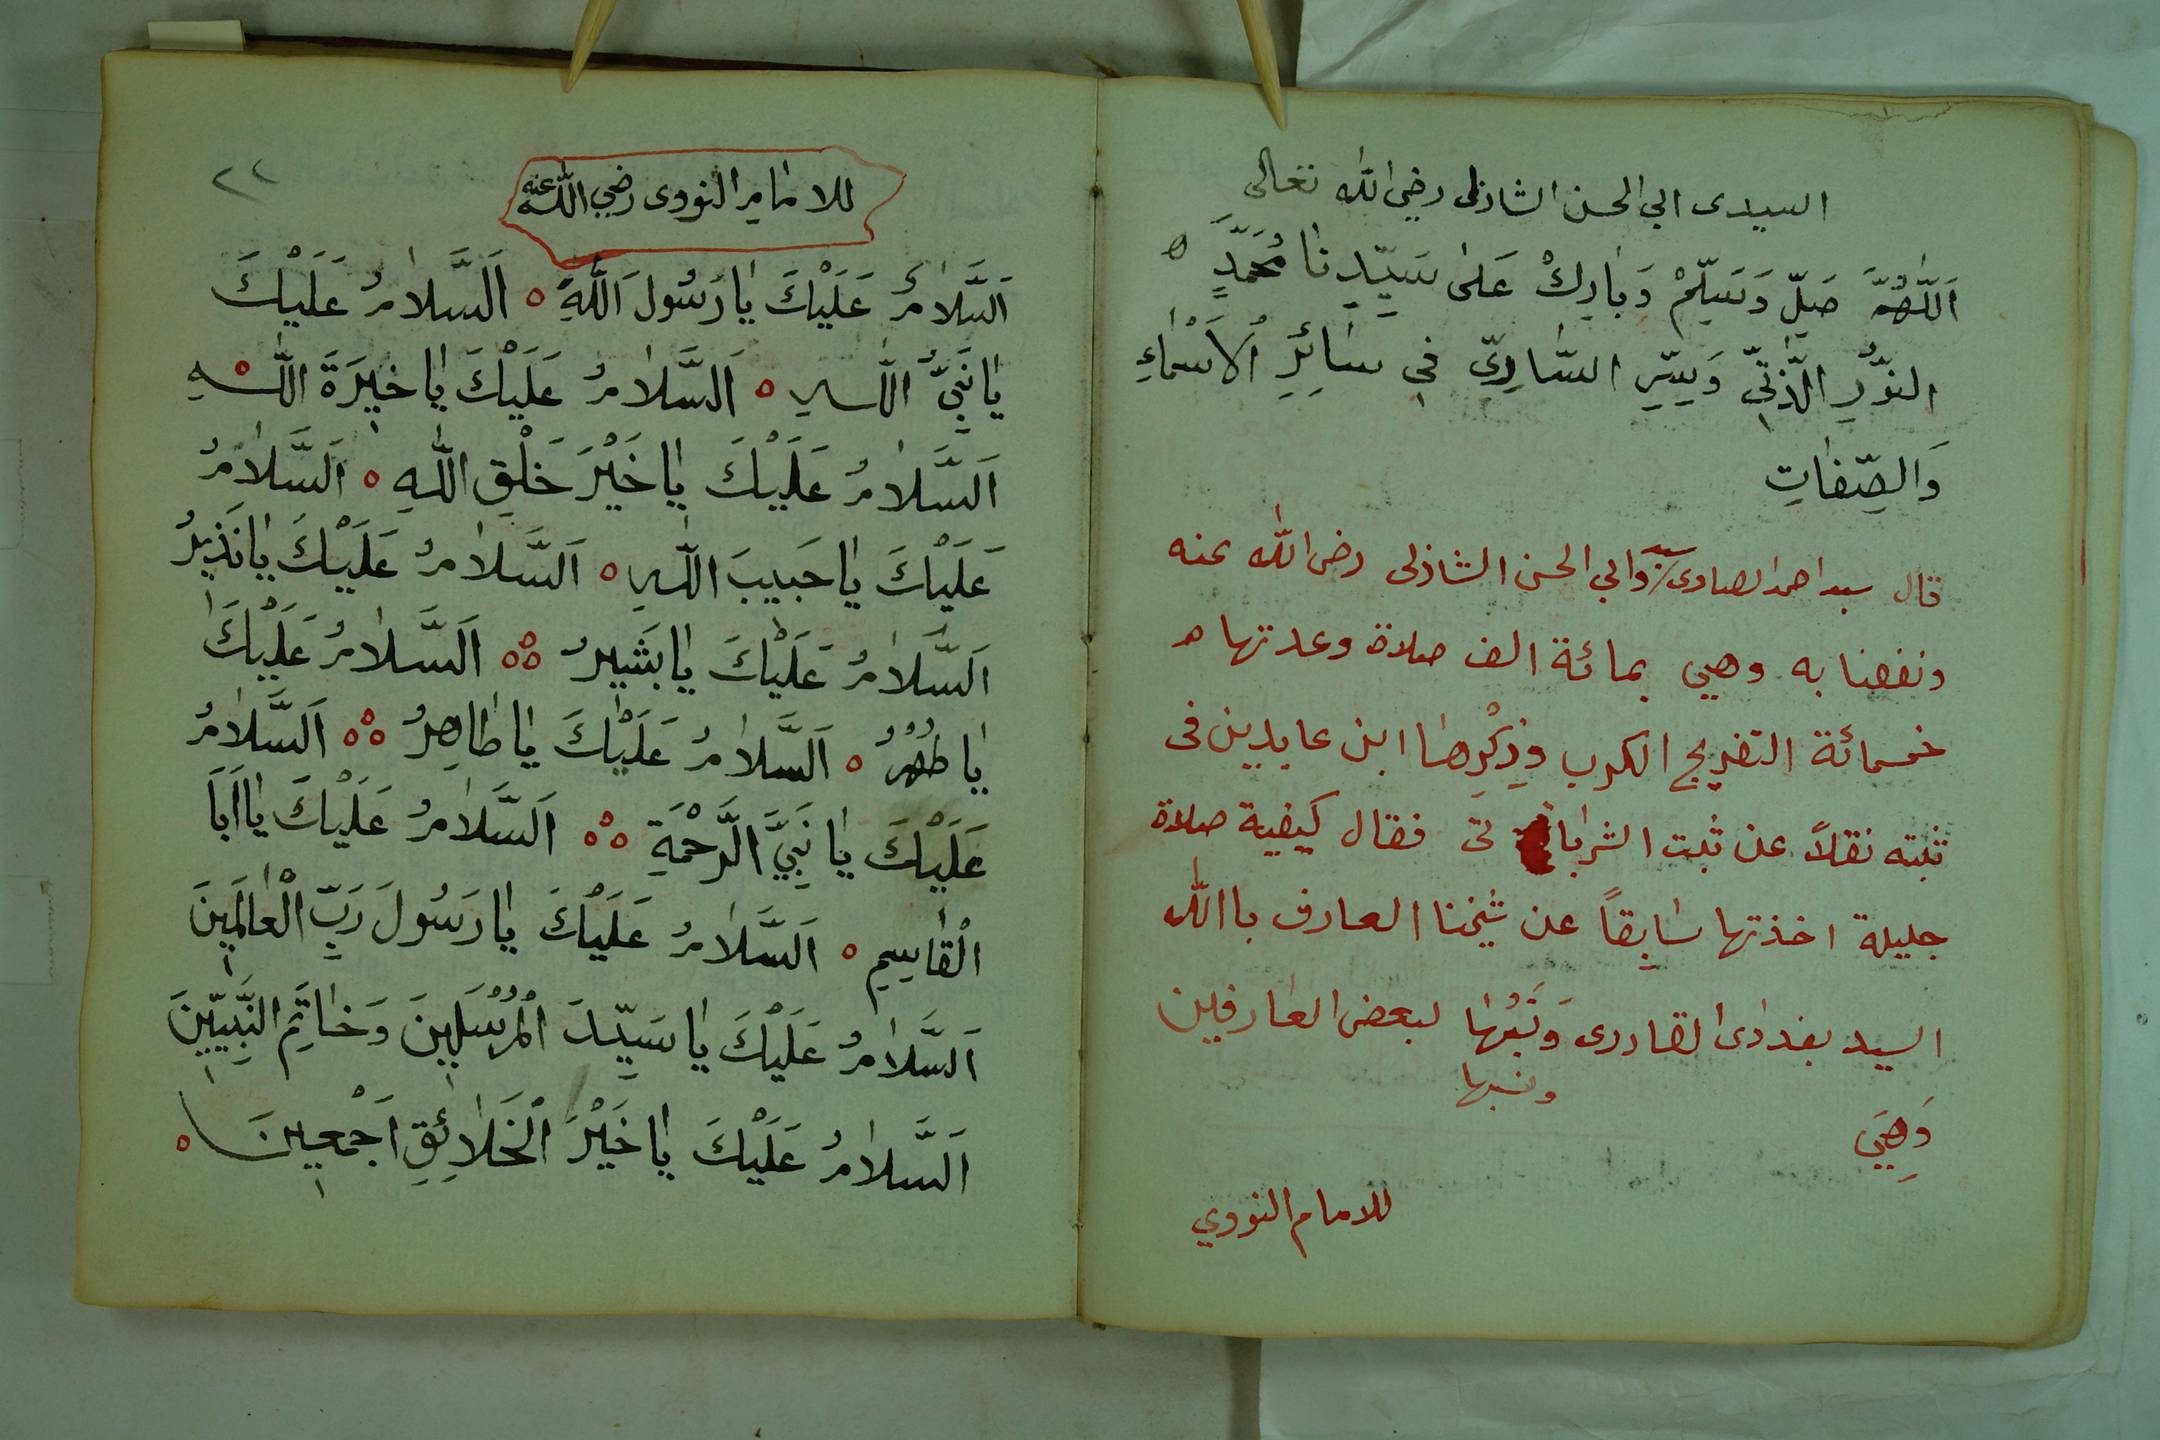 السيدى ابي الحسن الشاذلى رضي الله تعالى
اَللّٰهُمَّ صَلِّ وَسَلِّمْ وَبَارِكْ عَلىٰ سَيِّدِنٰا مُحَمَّدٍ ه
النُّورِ الذَّاتِيِّ وَسِرِّ السَّارِيِّ فِي سٰائِرِ الْاَسْمٰاءِ
وَالصِّفٰاتِ
قال سيد احمد الصاوى سيد وابي الحسن الشاذلى رضى الله عنه
ونفعنا به وهي بمائة الف صلاة وعدتها ه
خمسمائة التفريج الكرب وذِكْرِهٰا ابن عابدين فى
ثبته نقلاً عن ثبت الشرٰباتى فقال كَيفية صلاة
جليلة اخذتها سٰابِقاً عن شيخنا العارف باالله
السيد بغدادى القادرى وَنَسَبُهٰا لبعض العٰارفين
ونسبها
وَهِيَ
للامام النووي
٢٢
للامٰامِ النووى رضي اللّٰه عنه
اَلسَّلٰامُ عَلَيْكَ يٰا رَسُولَ اللّٰهِ ه اَلسَّلٰامُ عَلَيْكَ
يٰا نَبِيَّ اللّٰهِ ه اَلسَّلٰامُ عَلَيْكَ يٰا خِيرَةَ اللّٰهِ ه
اَلسَّلٰامُ عَلَيْكَ يٰا خَيْرَ خَلْقِ اللّٰهِ ه اَلسَّلٰامُ
عَلَيْكَ يٰا حَبِيبَ اللّٰهِ ه اَلسَّلٰامُ عَلَيْكَ يٰا نَذِيرُ
اَلسَّلٰامُ عَلَيْكَ يٰا بَشِيرُ ه اَلسَّلٰامُ عَلَيْكَ
يٰا طُهْرُ ه اَلسَّلٰامُ عَلَيْكَ يٰا طٰاهِرُ ه اَلسَّلٰامُ
عَلَيْكَ يٰا نَبِيَّ الرَّحْمَةِ ه اَلسَّلٰامُ عَلَيْكَ يٰا اَبَا
الْقٰاسِمِ ه اَلسَّلٰامُ عَلَيْكَ يٰا رَسُولَ رَبِّ الْعٰالَمِينَ
اَلسَّلٰامُ عَلَيْكَ يٰا سَيِّدَ الْمُرْسَلِينَ وَخٰاتَمِ النَّبِيِّينَ
اَلسَّلٰامُ عَلَيْكَ يٰا خَيْرَ الْخَلٰائِقِ اَجْمَعِينَ ه